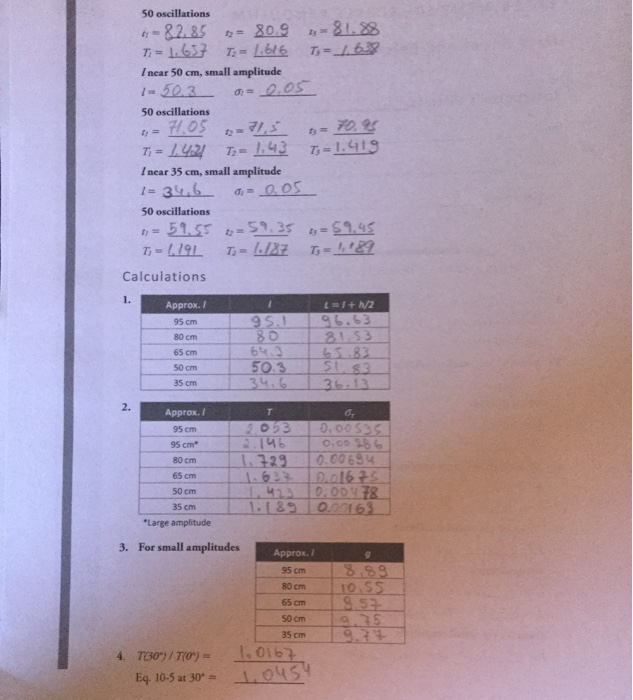 50 oscillations
t₁ = 82.85 t₂ = 80.9 t₃ = 81.88
T₁ = 1.657 T₂ = 1.616 T₃ = 1.638
l near 50 cm, small amplitude
l = 50.3 σₗ = 0.05
50 oscillations
t₁ = 71.05 t₂ = 71.5 t₃ = 70.95
T₁ = 1.421 T₂ = 1.43 T₃ = 1.419
l near 35 cm, small amplitude
l = 34.6 σₗ = 0.05
50 oscillations
t₁ = 59.55 t₂ = 59.35 t₃ = 59.45
T₁ = 1.191 T₂ = 1.187 T₃ = 1.189
Calculations
1. Approx. l l L = l + h/2
95 cm 95.1 96.63
80 cm 80 81.53
65 cm 64.3 65.83
50 cm 50.3 51.83
35 cm 34.6 36.13
2. Approx. l T σT
95 cm 2.053 0.00535
95 cm* 2.146 0.00286
80 cm 1.729 0.00694
65 cm 1.637 0.01675
50 cm 1.423 0.00478
35 cm 1.189 0.00163
*Large amplitude
3. For small amplitudes Approx. l g
95 cm 8.89
80 cm 10.55
65 cm 9.57
50 cm 9.75
35 cm 9.77
4. T(30°) / T(0°) = 1.0167
Eq. 10-5 at 30° = 1.0454